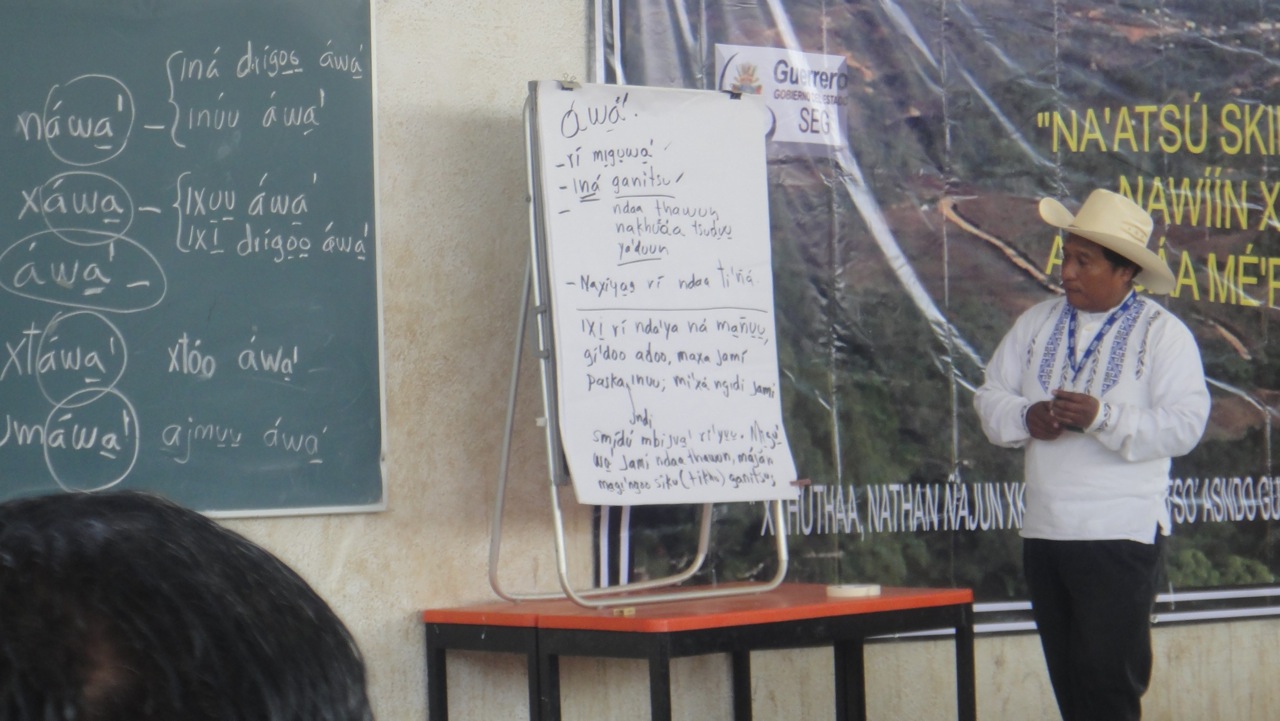 náwa̱' – iná drígoo̱ áwa̱'
inúu áwa̱'
xáwa̱ – ixuu̱ áwa̱'
ixi̱ drígoo̱ áwa̱'
áwa̱' –
xtáwa̱' xtóo áwa̱'
máwa̱' ajmuu̱ áwa̱'
áwa̱'.
- rí migu̱wa̱'
- iná ganitsu
- ndaa thawuun
nakhúáa tsudu̱u̱
ya'duun
- Naxíya̱a̱ rí ndaa ti'ñá.
ixi̱ rí nda'ya ná mañuu̱,
gí'doo adoo, maxa jamí
paska, inuu; mi'xá ngidi jamí
indi
smídú mbiju̱a̱' rí'yu̱u̱.
wa̱ jamí ndaa thawun, máján
magi'ngoo siku (tikhi) ganitsu̱
Guerrero
GOBIERNO DEL ESTADO
SEG
"NA'ATSÚ
NAWÍÍN X
MÉ'P
NATHAN NAJUN
ASNDO GU